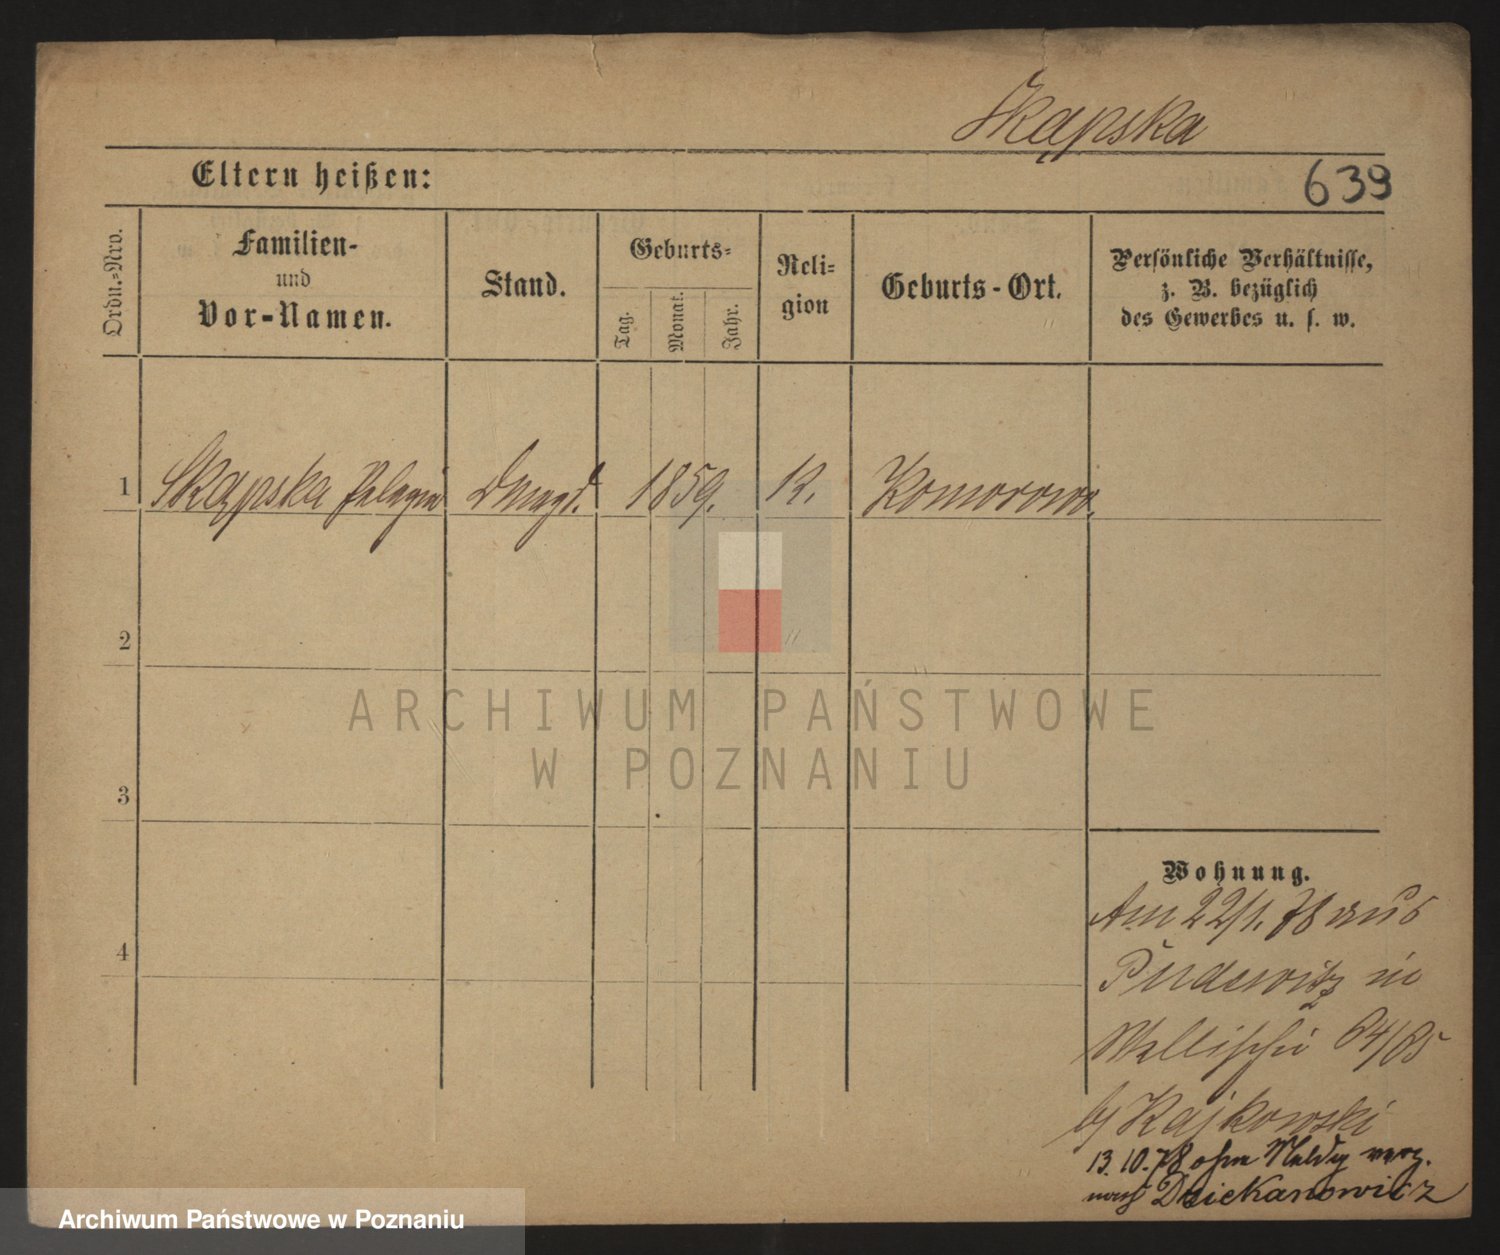 Skąpska
Eltern heißen:
639
Ordn.-Nro.
Familien-
und
Vor-Namen.
Stand.
Geburts-
Tag.
Monat.
Jahr.
Reli-
gion
Geburts-Ort.
Persönliche Verhältnisse,
z. B. bezüglich
des Gewerbes u. s. w.
1 Skąpska Pelagia Dmagd. 1859. K. Komorowo.
2
3
4
ARCHIWUM PAŃSTWOWE
W POZNANIU
Wohnung.
Am 22/1. 78 aus
Pudewitz in
Wallischei 64/65
b/ Rajkowski
13.10.78 ohne Meldg verz.
nach Dziekanowicz
Archiwum Państwowe w Poznaniu